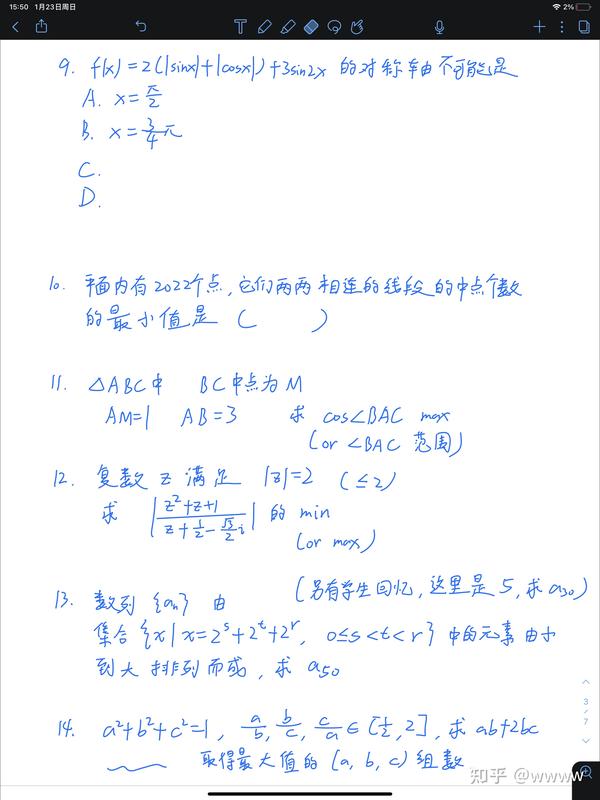 15:50 1月23日周日
2%
9. f(x)=2(|sinx|+|cosx|)+3sin2x 的对称轴不可能是
A. x=π/2
B. x=3/4π
C.
D.
10. 平面内有2022个点,它们两两相连的线段的中点个数
的最小值是 ( )
11. △ABC中 BC中点为M
AM=1 AB=3 求 cos∠BAC max
(or ∠BAC 范围)
12. 复数 z 满足 |z|=2 (≤2)
求 |(z²+z+1)/(z+1/2-√3/2 i)| 的 min
(or max)
(另有学生回忆,这里是 5,求 a30)
13. 数列 {an} 由
集合 {x|x=2^s+2^t+2^r, 0≤s<t<r} 中的元素由小
到大排列而成,求 a50
14. a²+b²+c²=1, a/b, b/c, c/a ∈ [1/2,2], 求 ab+2bc
取得最大值的 (a,b,c) 组数
3/7
知乎 @wwww